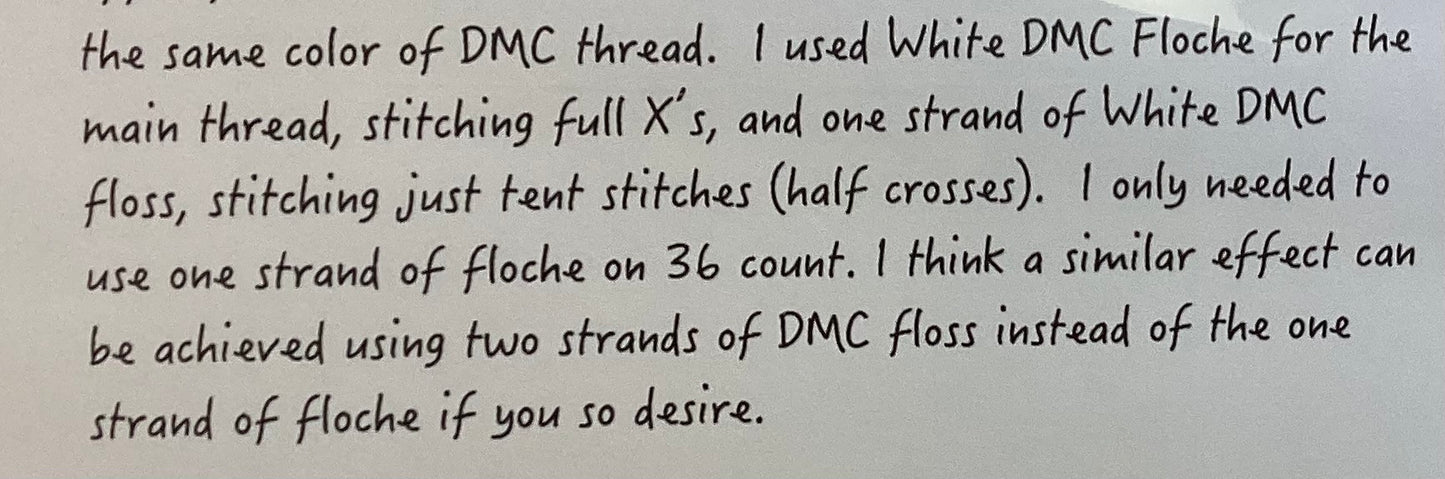 the same color of DMC thread. I used White DMC Floche for the
main thread, stitching full X's, and one strand of White DMC
floss, stitching just tent stitches (half crosses). I only needed to
use one strand of floche on 36 count. I think a similar effect can
be achieved using two strands of DMC floss instead of the one
strand of floche if you so desire.